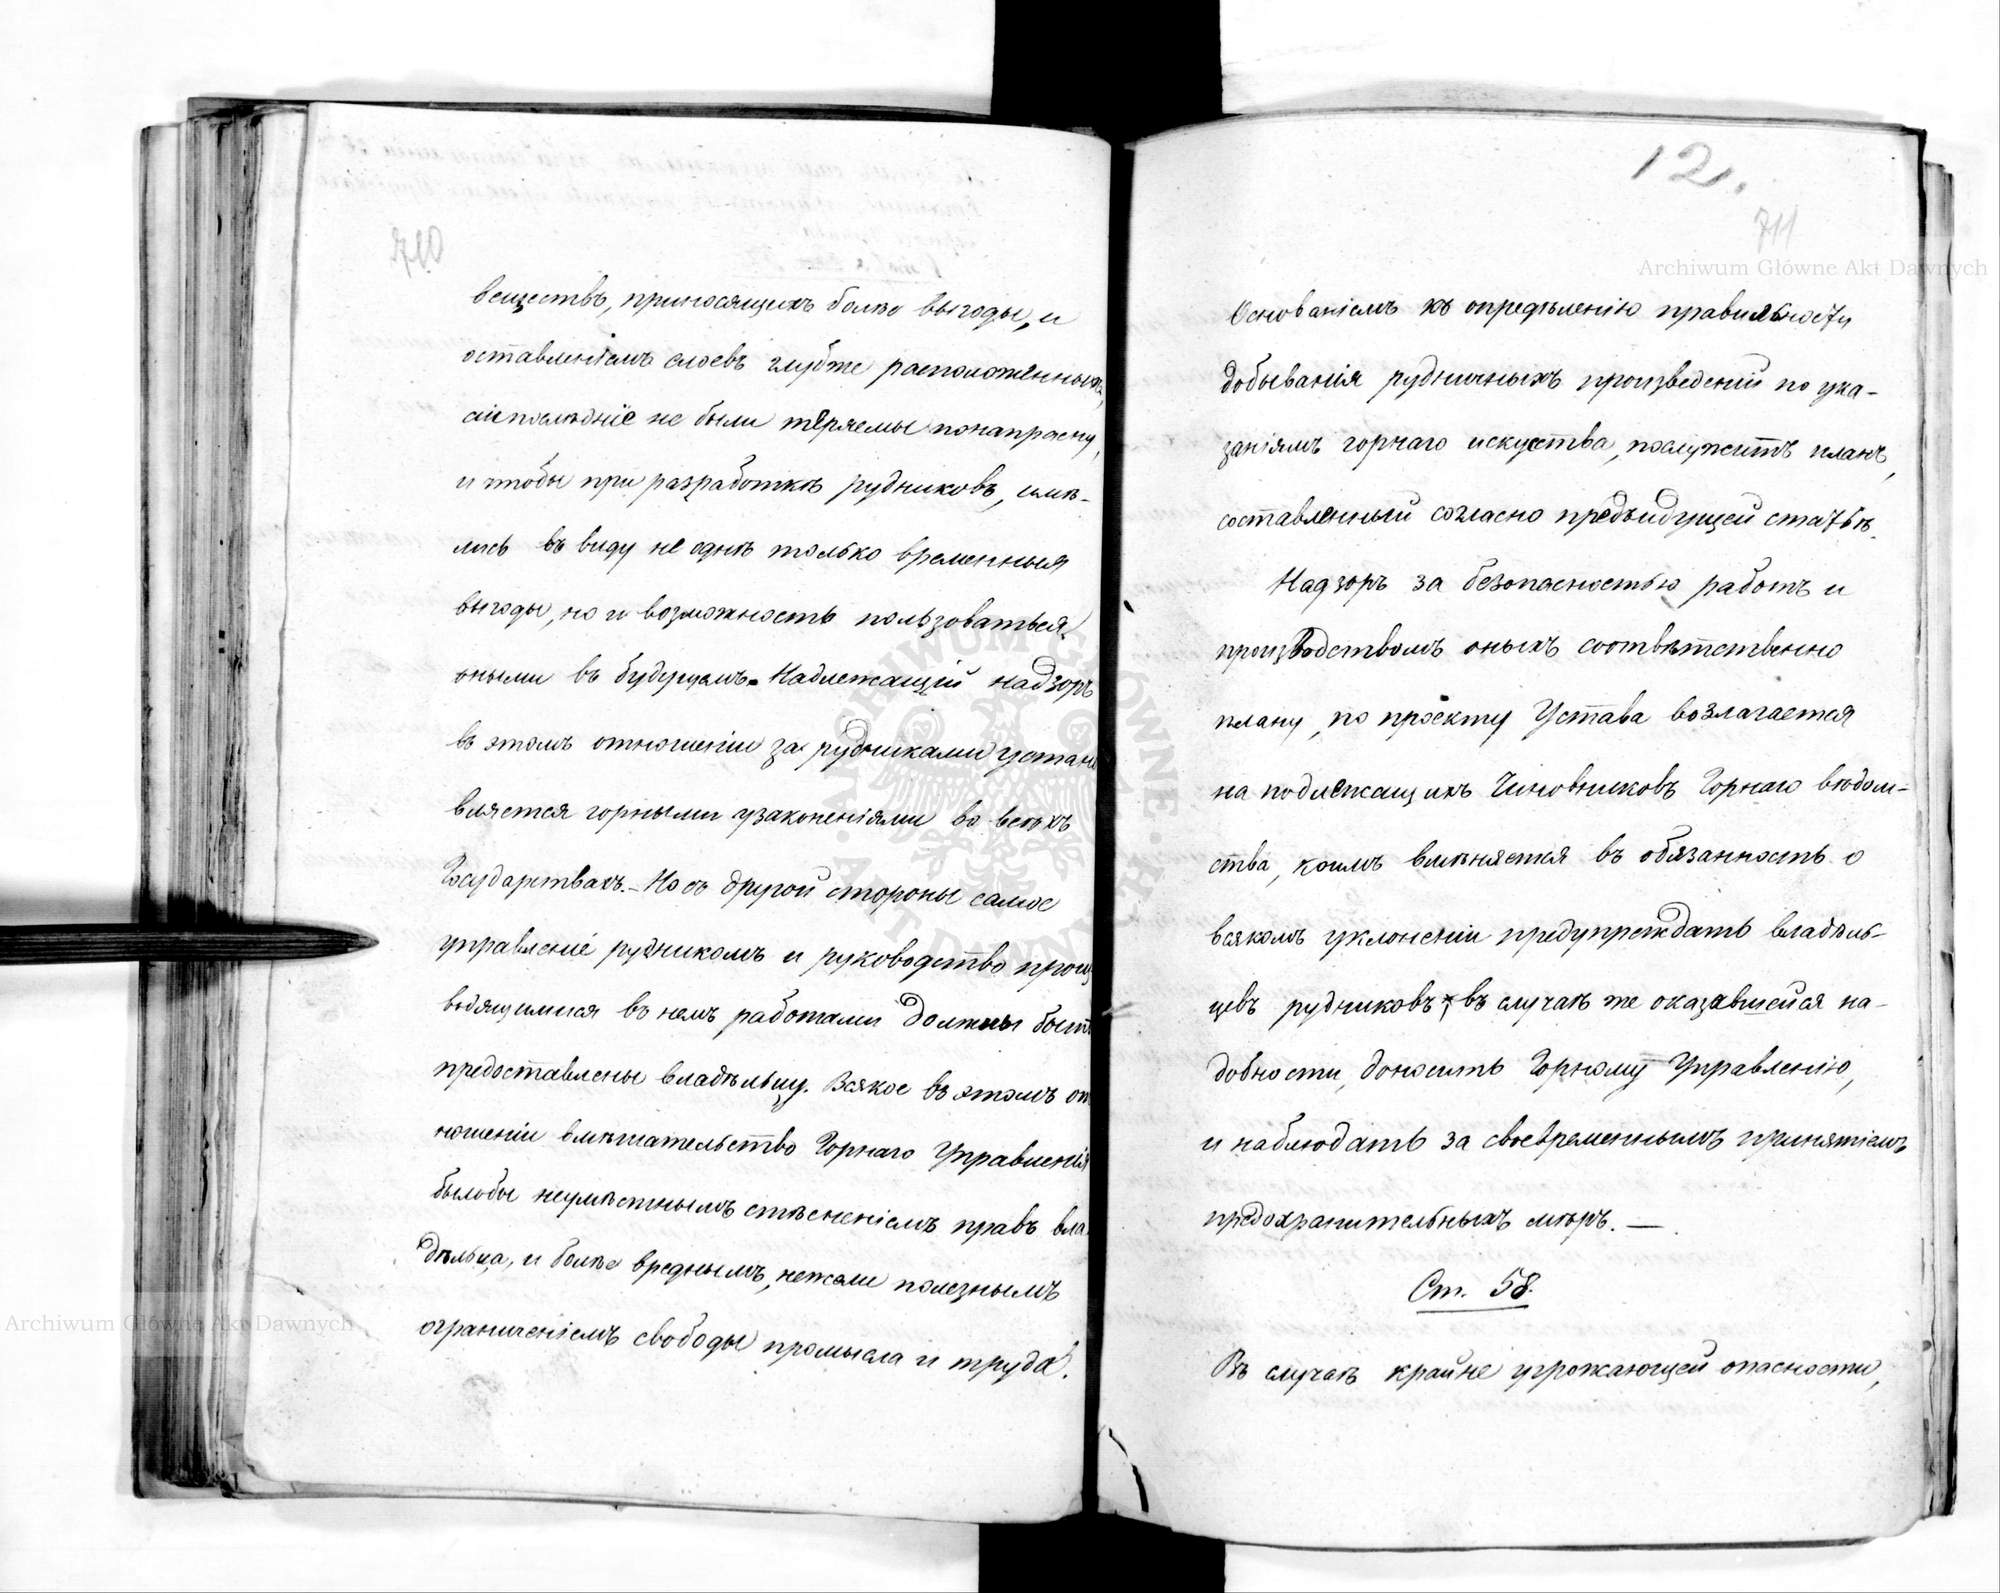 710
веществъ, приносящихъ болѣе выгоды, и
оставленіемъ слоевъ глубже расположенныхъ,
сіи послѣдніе не были теряемы понапрасну,
и чтобы при разработкѣ рудниковъ, имѣ-
лись въ виду не однѣ только временныя
выгоды, но и возможность пользоваться
оными въ будущемъ. Надлежащій надзоръ
въ этомъ отношеніи за рудниками устана
вляется горными узаконеніями во всѣхъ
Государствахъ. – Но съ другой стороны самое
управленіе рудникомъ и руководство произ
водящимися въ немъ работами должны быть
предоставлены владѣльцу. Всякое въ этомъ от
ношеніи вмѣшательство Горнаго Управленія
былобы неумѣстнымъ стѣсненіемъ правъ вла
дѣльца, и болѣе вреднымъ, нежели полезнымъ
ограниченіемъ свободы промысла и труда.
12.
711
Archiwum Główne Akt Dawnych
Основаніемъ къ опредѣленію правильности
добыванія рудничныхъ произведеній по ука-
заніямъ горнаго искуства, послужитъ планъ,
составленный согласно предъидущей статьѣ.
Надзоръ за безопасностью работъ и
производствомъ оныхъ соотвѣтственно
плану, по проекту Устава возлагается
на подлежащихъ Чиновниковъ Горнаго вѣдом-
ства, коимъ вмѣняется въ обязанность о
всякомъ уклоненіи предупреждать владѣль-
цевъ рудниковъ, въ случаѣ же оказавшейся на-
добности, доносить Горному Управленію,
и наблюдать за своевременнымъ принятіемъ
предохранительныхъ мѣръ. —
Ст. 58.
Въ случаѣ крайне угрожающей опасности,
Archiwum Główne Akt Dawnych
ARCHIWUM GŁÓWNE AKT DAWNYCH